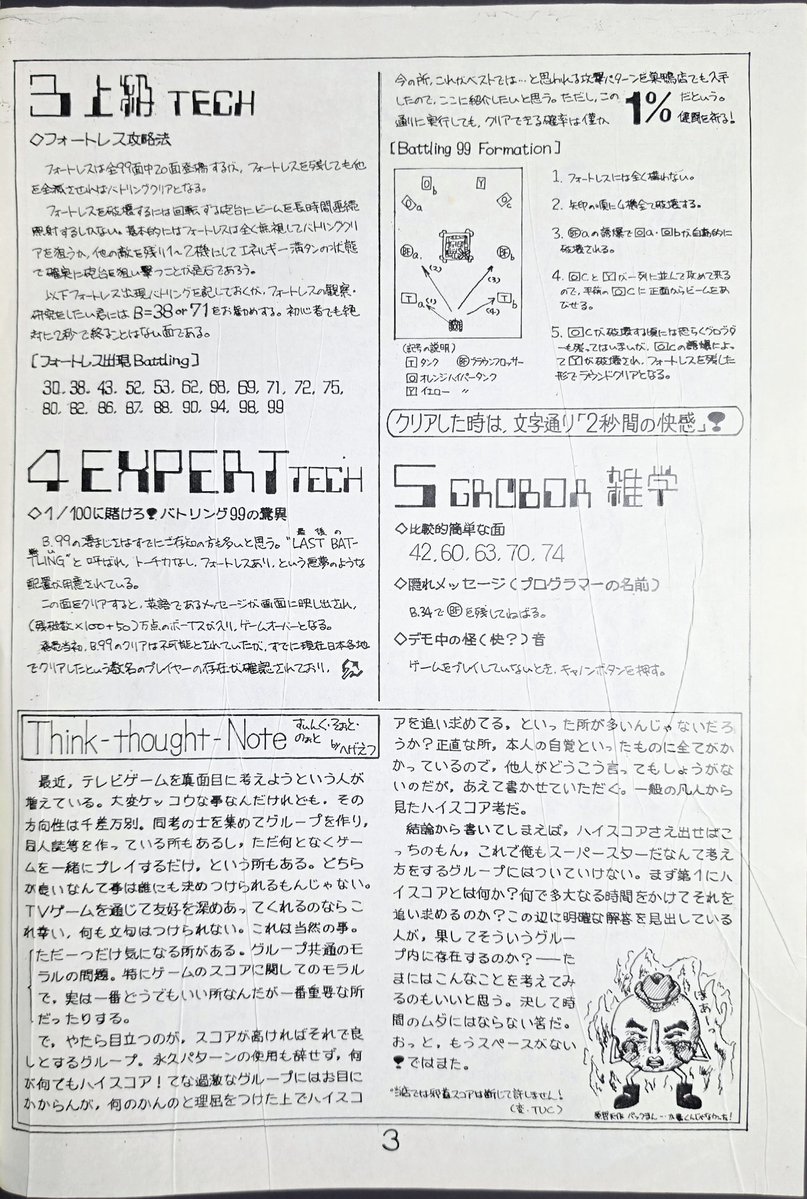 3 上級 TECH
◇フォートレス攻略法
フォートレスは全99面中20面登場するが、フォートレスを残しても他
を全滅させればバトリングクリアとなる。
フォートレスを破壊するには回転する砲台にビームを長時間連続
照射するしかない。基本的にはフォートレスは全く無視してバトリングクリ
アを狙うか、他の敵を残り1〜2機にしてエネルギー満タンの状態
で確実に砲台を狙い撃つことが定石であろう。
以下フォートレス出現バトリングを記しておくが、フォートレスの観察・
研究をしたい君には B=38 or 71をお勧めする。初心者でも絶
対に2秒で終ることはない面である。
[フォートレス出現 Battling]
30. 38. 43. 52, 53, 62, 68, 69, 71, 72, 75,
80, 82, 86, 87, 88, 90, 94, 98, 99
4 EXPERT TECH
◇1/100に賭けろ❢バトリング99の驚異
B.99の凄まじさはすでにご存知の方も多いと思う。"LAST BAT-
TLING"と呼ばれ、トーチカなし、フォートレスあり、という悪夢のような
配置が用意されている。
この面をクリアすると、英語であるメッセージが画面に映し出され、
(残機数×100+50)万点のボーナスが入り、ゲームオーバーとなる。
発売当初、B.99のクリアは不可能とされていたが、すでに現在日本各地
でクリアしたという数名のプレイヤーの存在が確認されており、
今の所、これがベストでは…と思われる攻撃パターンを巣鴨店でも入手
したので、ここに紹介したいと思う。ただし、この
通りに実行しても、クリアできる確率は僅か 1% だという。
健闘を祈る!
[Battling 99 Formation]
O b Y
O a O c
RF a. RF b
(2) (3)
T a T b
(1) (4)
(記号の説明)
T タンク RF ラウンフロッサー
O オレンジハイパータンク
Y イエロー 〃
1. フォートレスには全く構わない。
2. 矢印の順に4機全て破壊する。
3. RF aの誘爆で O a・O bが自動的に
破壊される。
4. O cと Y が一列に並んで攻めて来る
ので、手前の O cに正面からビームをあ
びせる。
5. O cが破壊する頃には
残ってはいまいが、O cの誘爆によっ
て Y が破壊され、フォートレスを残した
形でラウンドクリアとなる。
クリアした時は、文字通り「2秒間の快感」❢
5 GROBDA 雑学
◇比較的簡単な面
42, 60, 63, 70, 74
◇隠れメッセージ(プログラマーの名前)
B.34で RF を残してねばる。
◇デモ中の怪(快?)音
ゲームをプレイしていないとき、キャノンボタンを押す。
Think-thought-Note すぃんく・そぉと・
のぉと
byへげえつ
最近、テレビゲームを真面目に考えようという人が
増えている。大変ケッコウな事なんだけれども、その
方向性は千差万別。同考の士を集めてグループを作り、
同人誌等を作っている所もあるし、ただ何となくゲー
ムを一緒にプレイするだけ、という所もある。どちら
が良いなんて事は誰にも決めつけられるもんじゃない。
TVゲームを通じて友好を深めあってくれるのならこ
れ幸い、何も文句はつけられない。これは当然の事。
ただ一つだけ気になる所がある。グループ共通のモ
ラルの問題。特にゲームのスコアに関してのモラル
で、実は一番どうでもいい所なんだが一番重要な所
だったりする。
で、やたら目立つのが、スコアが高ければそれで良
しとするグループ。永久パターンの使用も辞せず、何
が何でもハイスコア!てな過激なグループにはお目に
かからんが、何のかんのと理屈をつけた上でハイスコ
アを追い求めてる、といった所が多いんじゃないだろ
うか?正直な所、本人の自覚といったものに全てがか
かっているので、他人がどうこう言ってもしょうがな
いのだが、あえて書かせていただく。一般の凡人から
見たハイスコア考だ。
結論から書いてしまえば、ハイスコアさえ出せばこ
っちのもん、これで俺もスーパースターだなんて考え
方をするグループにはついていけない。まず第1にハ
イスコアとは何か?何で多大なる時間をかけてそれを
追い求めるのか?この辺に明確な解答を見出している
人が、果してそういうグルー
プ内に存在するのか?──た
まにはこんなことを考えてみ
るのもいいと思う。決して時
間のムダにはならない筈だ。
おっと、もうスペースがない
❢ではまた。
"当店では邪道スコアは断じて許しません!
(変・TUC)
ぼぉーっ
3